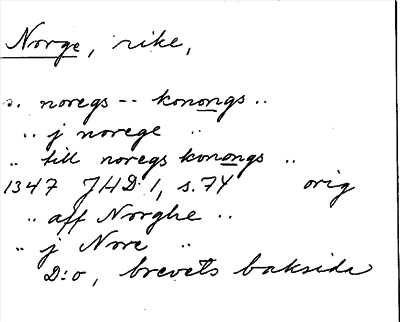 Norge, rike,
s. noregs -- konongs ..
.. j norege ..
.. till noregs konongs ..
1347 JHD 1, s. 74 orig
.. aff Norghe ..
.. j Nore ..
D:o, brevets baksida